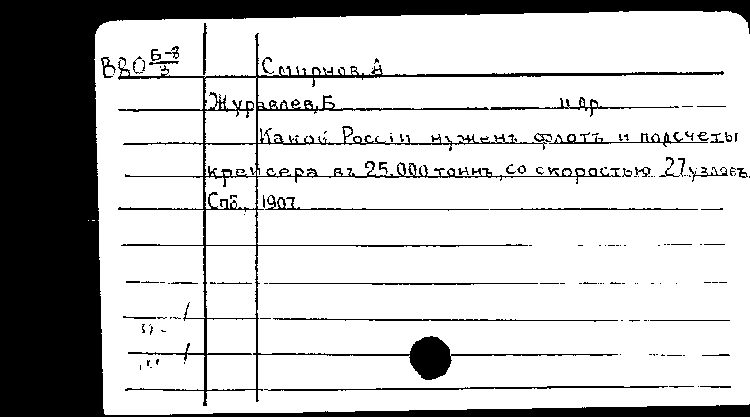 В80 Б-8/3 Смирнов, А
Журавлев, Б и др.
Какой Россіи нуженъ флотъ и подсчеты
крейсера въ 25.000 тоннъ, со скоростью 27 узловъ.
Спб., 1907.